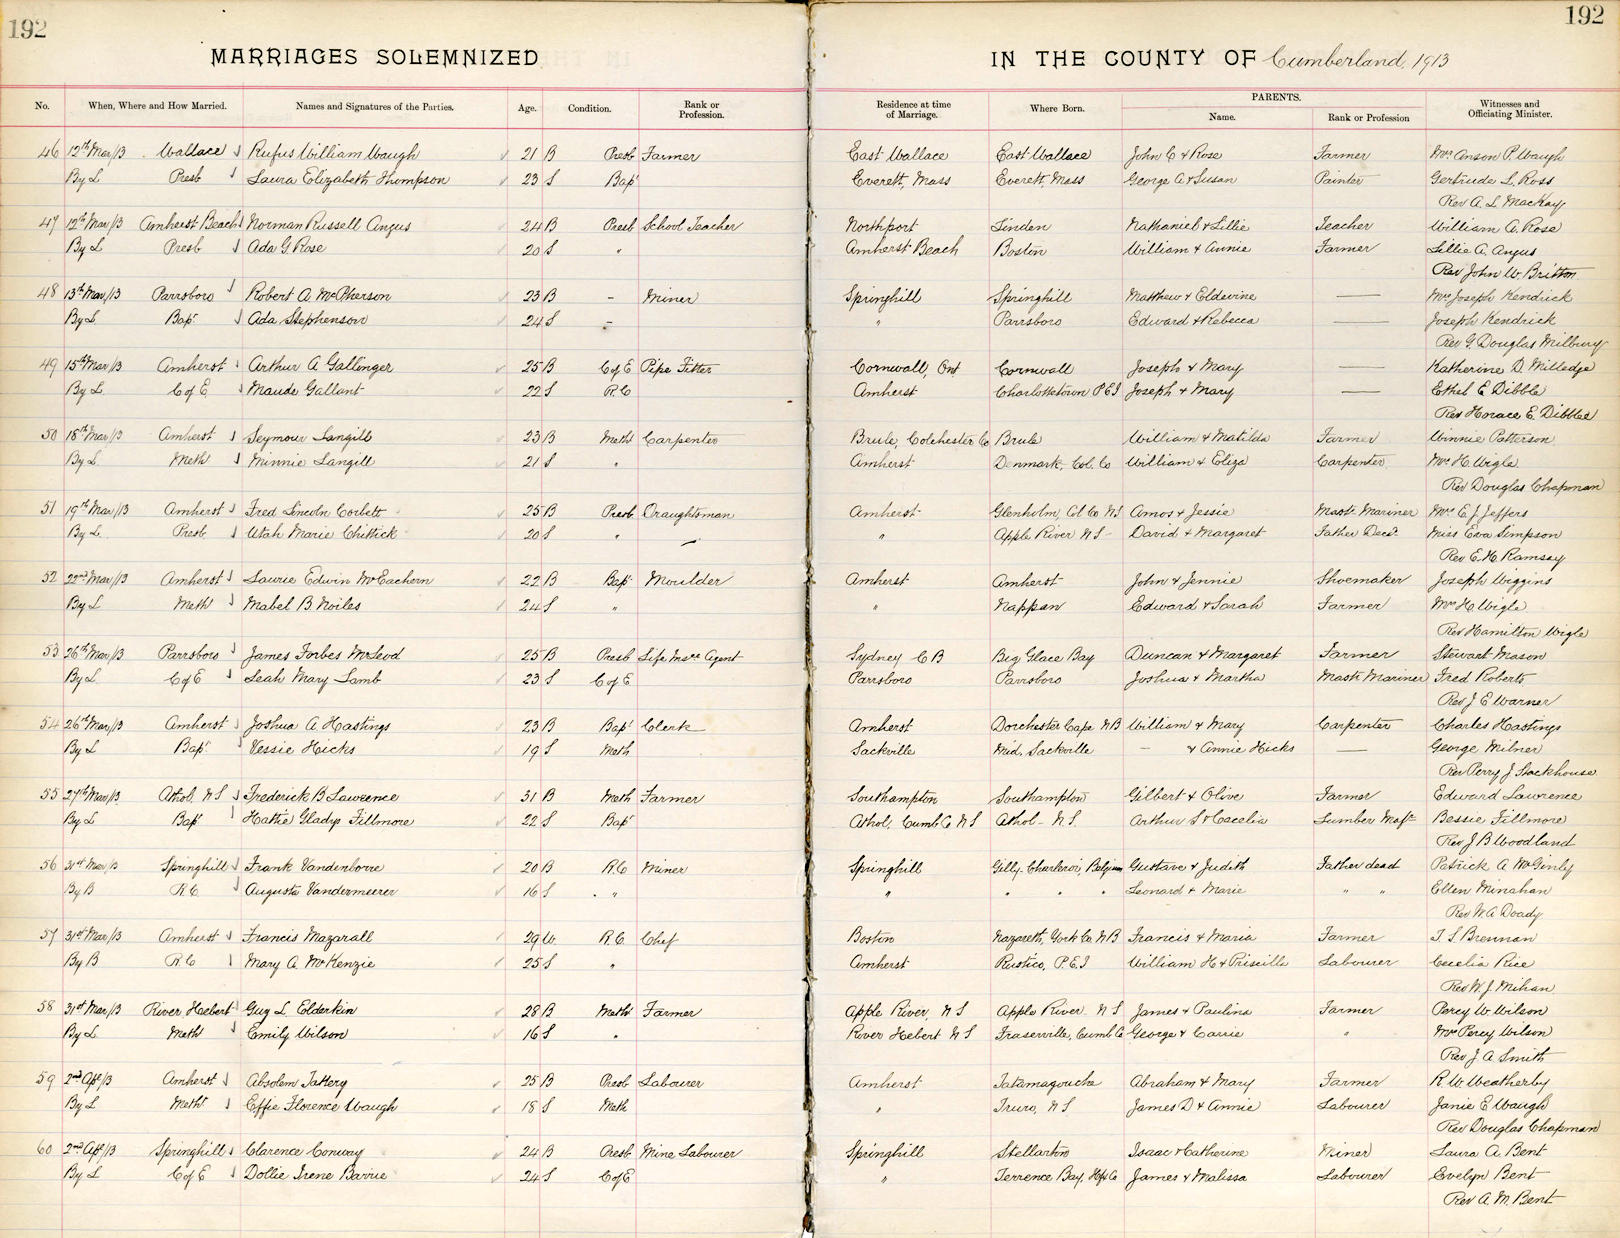 192
192
MARRIAGES SOLEMNIZED
IN THE COUNTY OF Cumberland 1913
No. When, Where and How Married. Names and Signatures of the Parties. Age. Condition. Rank or Profession. Residence at time of Marriage. Where Born. PARENTS. Name. Rank or Profession Witnesses and Officiating Minister.
46 12th Mar/13 Wallace Rufus William Waugh 21 B Presb Farmer East Wallace East Wallace John C & Rose Farmer Mrs Anson P. Waugh
By L Presb Laura Elizabeth Thompson 23 S Bap' Everett, Mass Everett, Mass George A & Susan Painter Gertrude L. Ross
Rev A. L. MacKay
47 12th Mar/13 Amherst Beach Norman Russell Angus 24 B Presb School Teacher Northport Linden Nathaniel & Lillie Teacher William A. Rose
By L Presb Ada G. Rose 20 S " Amherst Beach Boston William & Annie Farmer Lillie A. Angus
Rev John W. Britton
48 13th Mar/13 Parrsboro Robert A McPherson 23 B – Miner Springhill Springhill Matthew & Eldevine — Mrs Joseph Kendrick
By L Bap' Ada Stephenson 24 S – " Parrsboro Edward & Rebecca — Joseph Kendrick
Rev G. Douglas Milbury
49 15th Mar/13 Amherst Arthur A Gallinger 25 B C of E Pipe Fitter Cornwall, Ont Cornwall Joseph & Mary — Katherine D. Milledge
By L C of E Maude Gallant 22 S R.C Amherst Charlottetown P E I Joseph & Mary — Ethel E Dibble
Rev Horace E. Dibblee
50 18th Mar/13 Amherst Seymour Langill 23 B Meth Carpenter Brule, Colchester Co Brule William & Matilda Farmer Winnie Patterson
By L Meth Minnie Langill 21 S " Amherst Denmark, Col. Co William & Eliza Carpenter Mrs H. Wigle
Rev Douglas Chapman
51 19th Mar/13 Amherst Fred Lincoln Corbett 25 B Presb Draughtsman Amherst Glenholm, Col Co NS Amos & Jessie Mast. Mariner Mrs E. J. Jeffers
By L Presb Utah Marie Chittick 20 S " " Apple River N S David & Margaret Father Decd. Miss Eva Simpson
Rev E. H. Ramsay
52 22nd Mar/13 Amherst Laurie Edwin McEachern 22 B Bap' Moulder Amherst Amherst John & Jennie Shoemaker Joseph Wiggins
By L Meth Mabel B Noiles 24 S " " Nappan Edward & Sarah Farmer Mrs H Wigle
Rev Hamilton Wigle
53 26th Mar/13 Parrsboro James Forbes McLeod 25 B Presb Life Insce Agent Sydney C B Big Glace Bay Duncan & Margaret Farmer Stewart Mason
By L C of E Leah Mary Lamb 23 S C of E Parrsboro Parrsboro Joshua & Martha Mast. Mariner Fred Roberts
Rev J E Warner
54 26th Mar/13 Amherst Joshua A Hastings 23 B Bap' Clerk Amherst Dorchester Cape NB William & Mary Carpenter Charles Hastings
By L Bap' Vessie Hicks 19 S Meth Sackville Mid. Sackville – & Annie Hicks — George Milner
Rev Perry J Stackhouse
55 27th Mar/13 Athol, N S Frederick B Lawrence 31 B Meth Farmer Southampton Southampton Gilbert & Olive Farmer Edward Lawrence
By L Bap' Hattie Gladys Fillmore 22 S Bap' Athol, Cumb Co N S Athol N S. Arthur S & Cecelia Lumber Bessie Fillmore
Rev J B Woodland
56 31st Mar/13 Springhill Frank Vandenborre 20 B R.C Miner Springhill Gilly. Charleroi, Belgium Gustave & Judith Father dead Patrick A McGinly
By B R C Augusta Vandermeerer 16 S " " " " " Leonard & Marie " " Ellen Minahan
Rev W. A. Doady
57 31st Mar/13 Amherst Francis Mazarall 29 W. R.C. Chef Boston Nazareth, York Co. N B Francis & Maria Farmer T. S. Brennan
By B R C Mary A. McKenzie 25 S " Amherst Rustico, P.E.I William H & Priscilla Labourer Cecelia Rice
Rev W. J. Mihan
58 31st Mar/13 River Hebert Guy L Elderkin 28 B Meth Farmer Apple River, N S Apple River N S James & Paulina Farmer Percy W. Wilson
By L Meth Emily Wilson 16 S " River Hebert N S Fraserville, Cumb Co George & Carrie " Mrs Percy Wilson
Rev J. A Smith
59 2nd Apl/13 Amherst Absolem Tattery 25 B Presb Labourer Amherst Tatamagouche Abraham & Mary Farmer R. W. Weatherby
By L Meth Effie Florence Waugh 18 S Meth " Truro, N S James D & Annie Labourer Janie E Waugh
Rev Douglas Chapman
60 2nd Apl/13 Springhill Clarence Conway 24 B Presb. Mine Labourer Springhill Stellarton Isaac & Catherine Miner Laura A. Bent
By L C of E Dollie Irene Barrie 24 S C of E " Terrence Bay, Hfx Co James & Malissa Labourer Evelyn Bent
Rev A. M. Bent